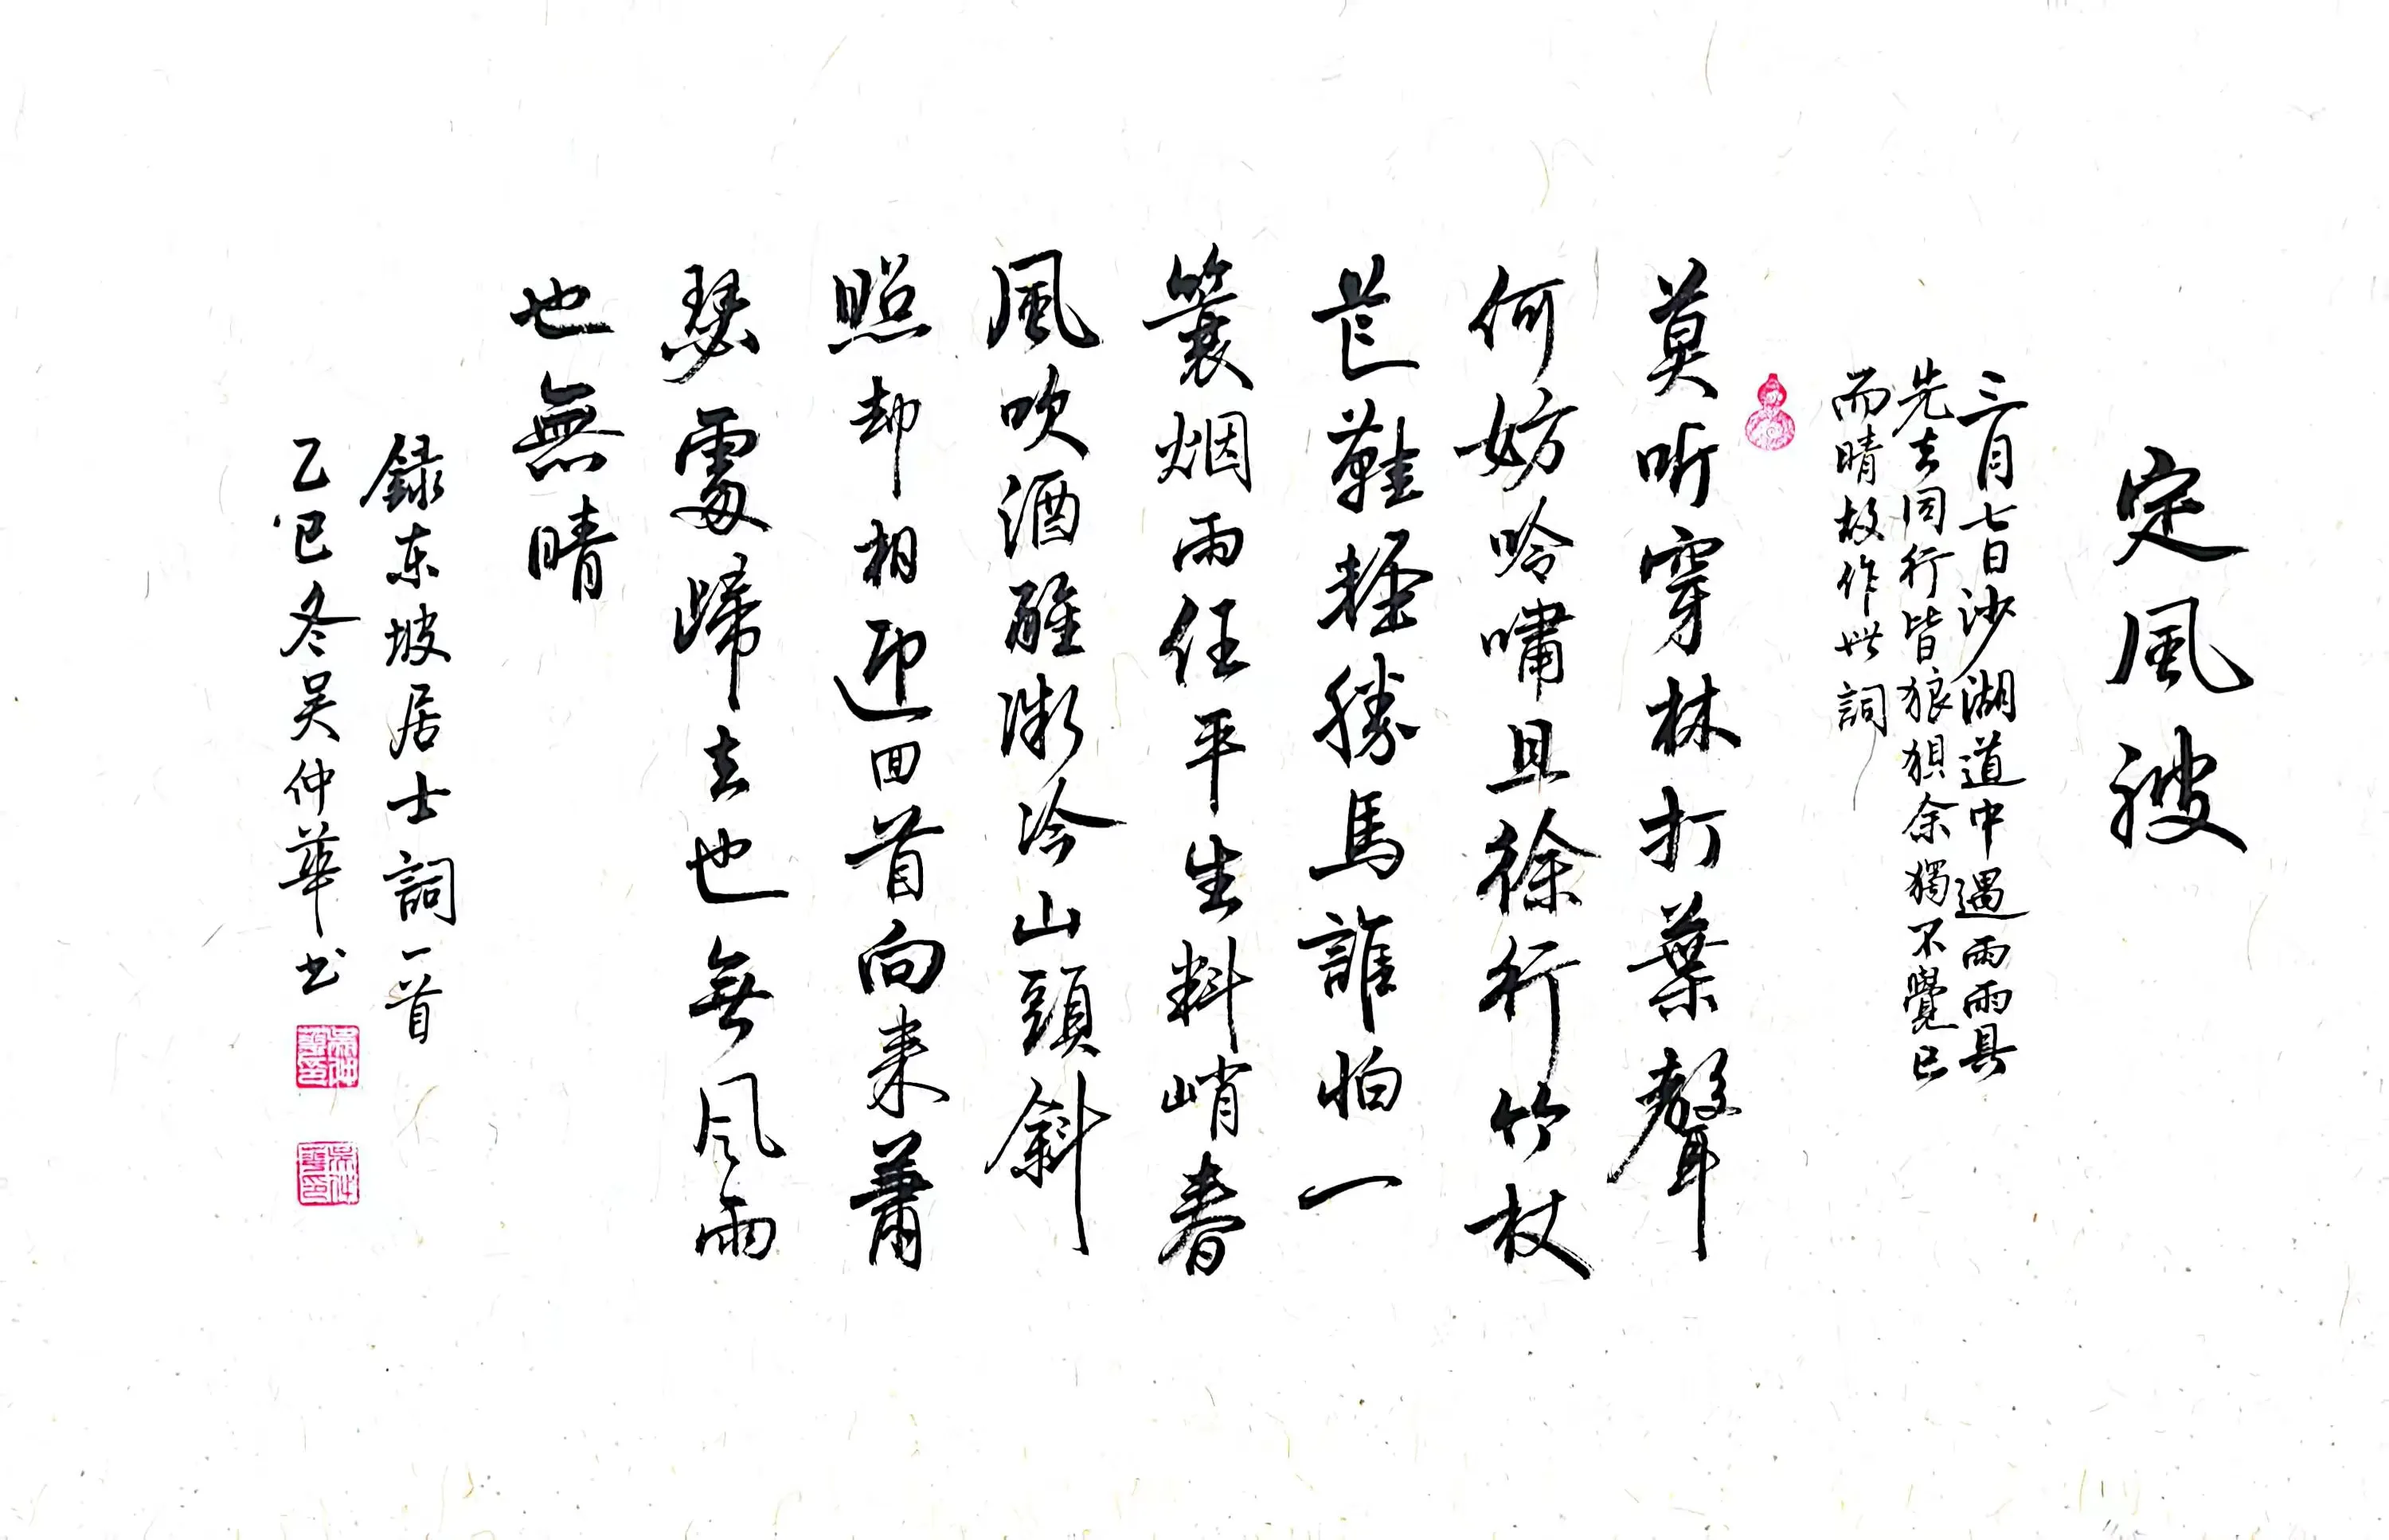 定風波
三月七日沙湖道中遇雨雨具
先去同行皆狼狽余獨不覺已
而晴故作此詞
莫听穿林打葉聲
何妨吟嘯且徐行竹杖
芒鞋輕勝馬誰怕一
簑烟雨任平生料峭春
風吹酒醒微冷山頭斜
照却相迎回首向来蕭
瑟處歸去也無風雨
也無晴
録东坡居士詞一首
乙巳冬吴仲華书
吴仲華印
吴仲華印